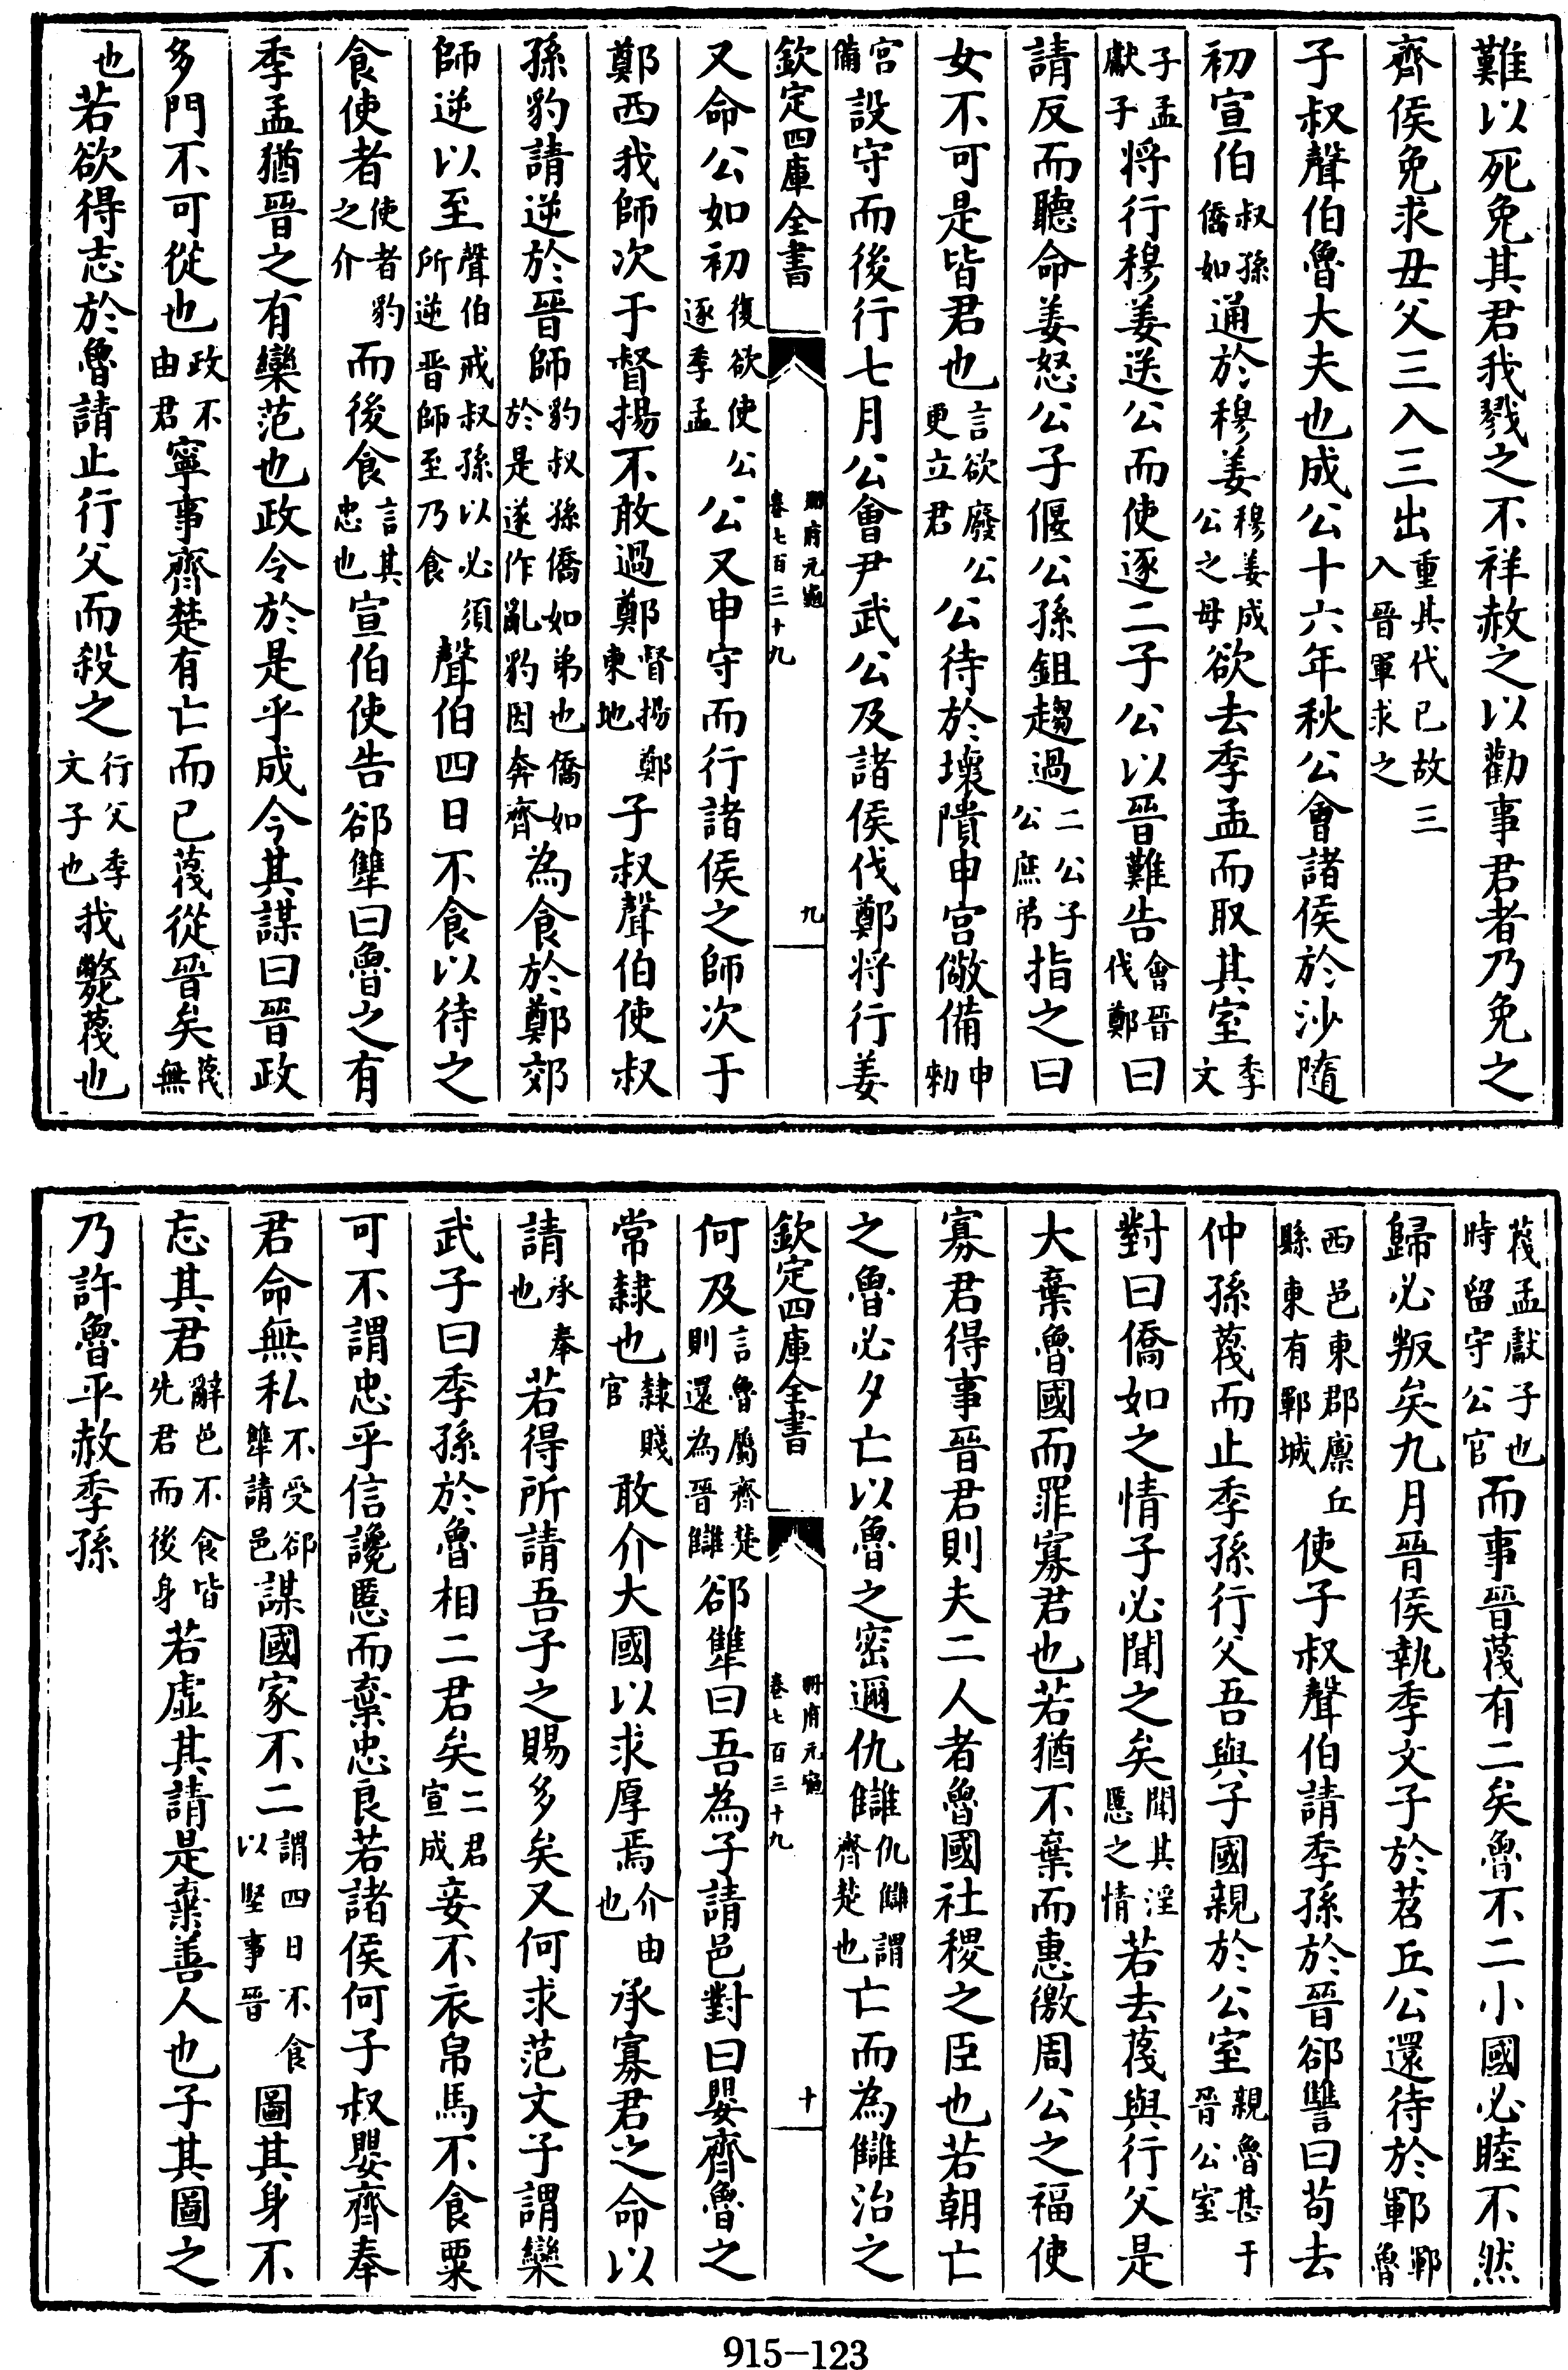 難以死免其君我戮之不祥赦之以勸事君者乃免之
齊侯免求丑父三入三出重其代已故三入晉軍求之
子叔聲伯魯大夫也成公十六年秋公會諸侯於沙隨
初宣伯叔孫僑如通於穆姜穆姜成公之母欲去季孟而取其室季文
子孟獻子將行穆姜送公而使逐二子公以晉難告會晉伐鄭曰
請反而聽命姜怒公子偃公孫鉏趨過二公子公庶弟指之曰
女不可是皆君也言欲廢公更立君公待於壞隤申宮儆備申勑
宮備設守而後行七月公會尹武公及諸侯伐鄭將行姜
欽定四庫全書 冊府元龜 卷七百三十九 九
又命公如初復欲使公逐季孟公又申守而行諸侯之師次于
鄭西我師次于督揚不敢過鄭督揚鄭東地子叔聲伯使叔
孫豹請逆於晉師豹叔孫僑如弟也僑如於是遂作亂豹因奔齊為食於鄭郊
師逆以至聲伯戒叔孫以必須所逆晉師至乃食聲伯四日不食以待之
食使者使者豹之介而後食言其忠也宣伯使告郤犨曰魯之有
季孟猶晉之有欒范也政令於是乎成今其謀曰晉政
多門不可從也政不由君寧事齊楚有亡而已蔑從晉矣蔑無
也若欲得志於魯請止行父而殺之行父季文子也我斃蔑也
蔑孟獻子也時留守公宮而事晉蔑有二矣魯不二小國必睦不然
歸必叛矣九月晉侯執季文子於苕丘公還待於鄆鄆魯
西邑東郡廩丘縣東有鄆城使子叔聲伯請季孫於晉郤犨曰苟去
仲孫蔑而止季孫行父吾與子國親於公室親魯甚于晉公室
對曰僑如之情子必聞之矣聞其淫慝之情若去蔑與行父是
大棄魯國而罪寡君也若猶不棄而惠徼周公之福使
寡君得事晉君則夫二人者魯國社稷之臣也若朝亡
之魯必夕亡以魯之密邇仇讎仇讎謂齊楚也亡而為讎治之
欽定四庫全書 冊府元龜 卷七百三十九 十
何及言魯屬齊楚則還為晉讎郤犨曰吾為子請邑對曰嬰齊魯之
常隸也隸賤官敢介大國以求厚焉介由也承寡君之命以
請承奉也若得所請吾子之賜多矣又何求范文子謂欒
武子曰季孫於魯相二君矣二君宣成妾不衣帛馬不食粟
可不謂忠乎信讒慝而棄忠良若諸侯何子叔嬰齊奉
君命無私不受郤犨請邑謀國家不二謂四日不食以堅事晉圖其身不
忘其君辭邑不食皆先君而後身若虛其請是棄善人也子其圖之
乃許魯平赦季孫
915-123